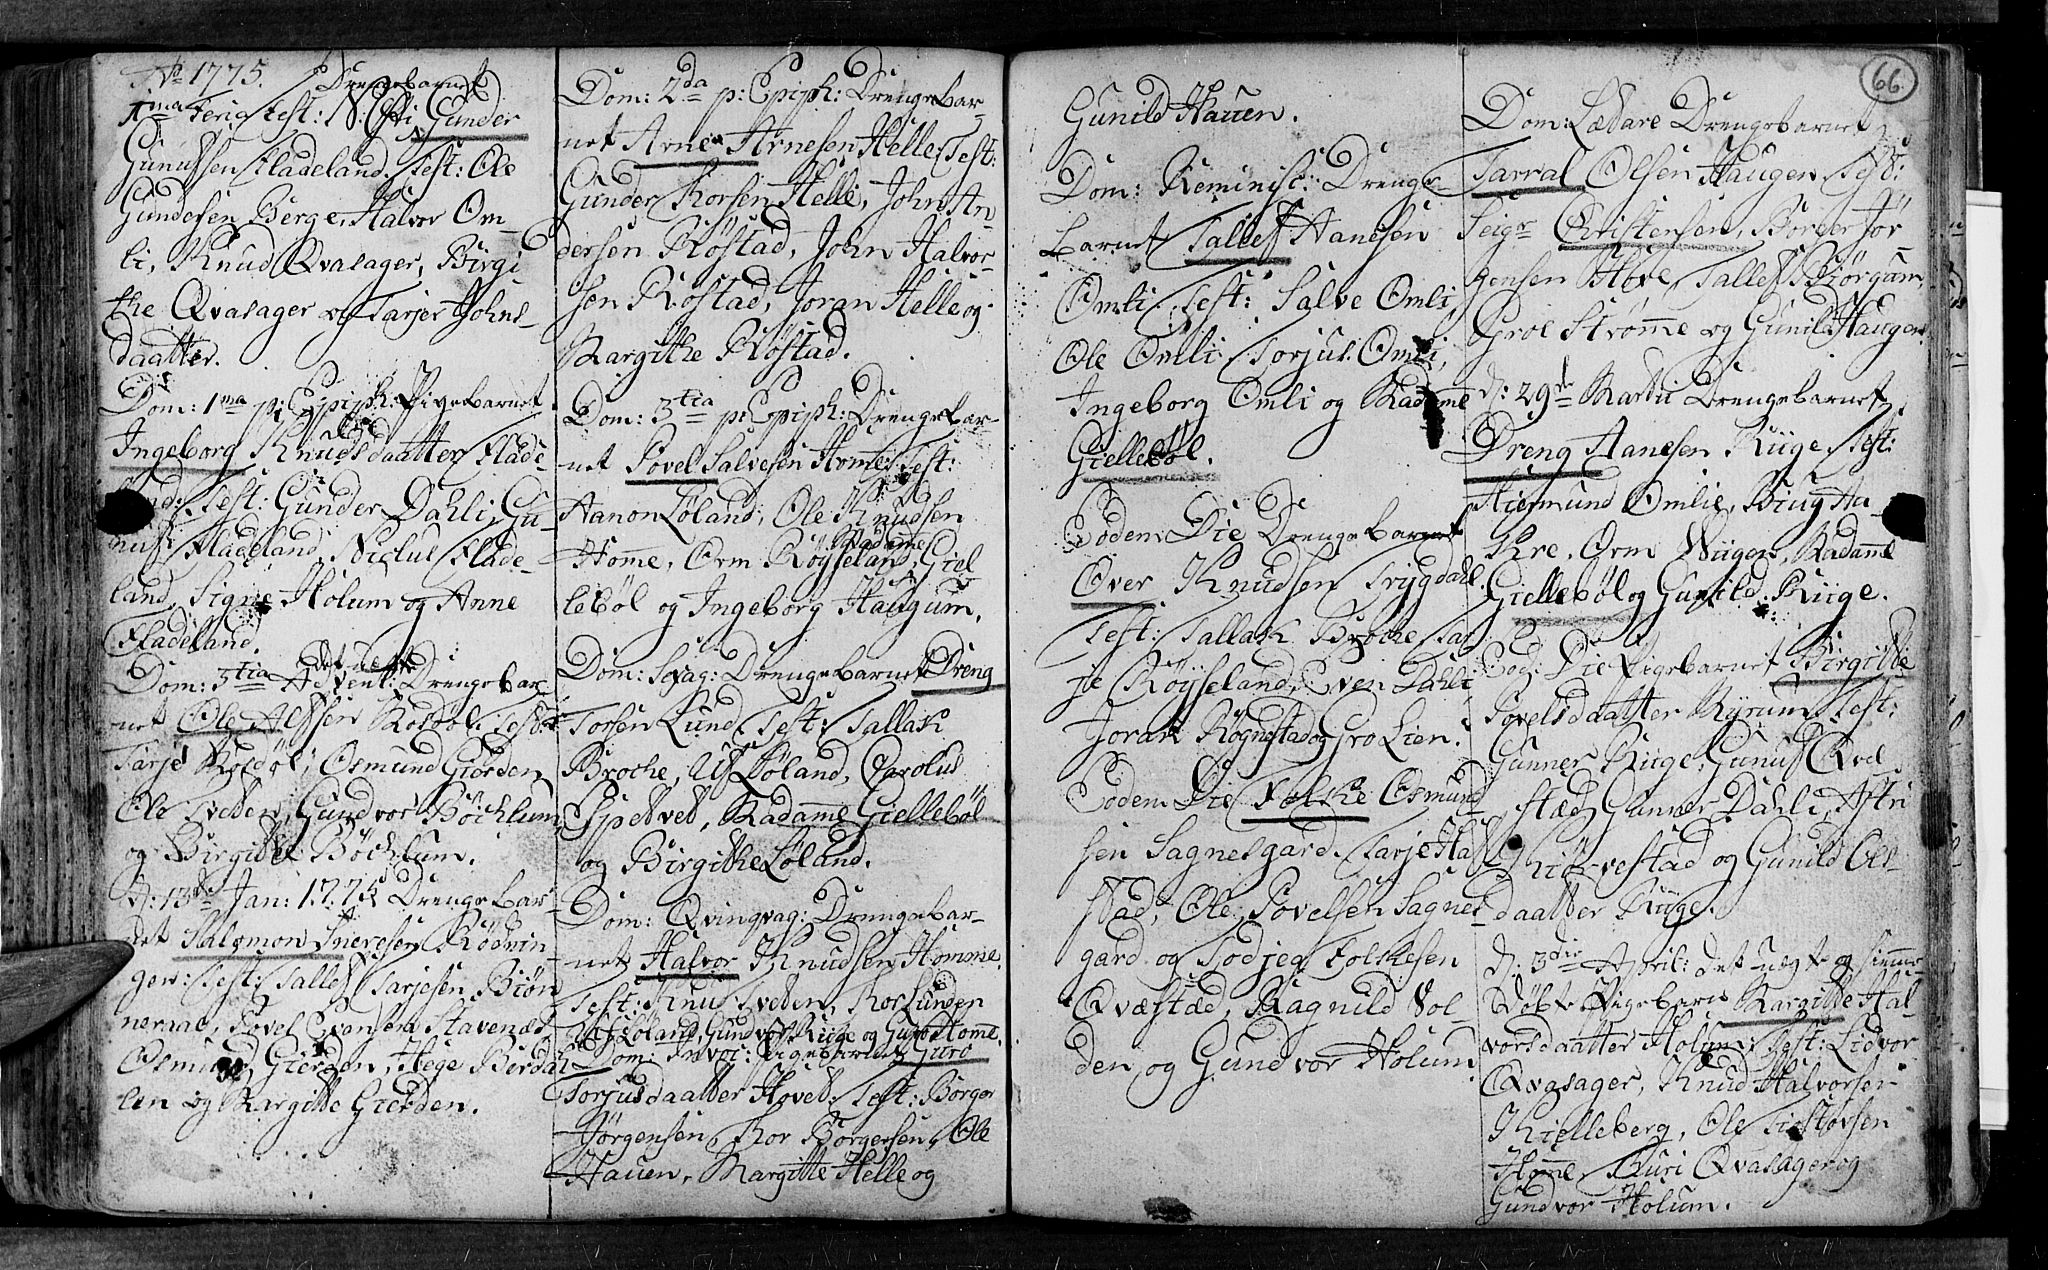 Ao 1775. Drengebarnet
1ma Ferie Fest: N: Gunder
Gunulfsen Fladeland. Test: Ole
Gundersen Berge, Halvor Om-
li, Knud Qvasager, Birgi
the Qvasager og Tarjer Johns-
daatter.
Dom: 1ma p: Epiph: Pigebarnet
Ingeborg Knudsdaatter Flade-
land: Test: Gunder Dahli, Gu-
nulf Fladeland, Niclul Flade-
land, Signe Holum og Anne
Fladeland.
Dom: 3tia Advent: Drengebar-
net Ole Alfsen Rosdøl. Test:
Tarje Rosdøl, Osmund Gierden
Ole Tveden, Gundvor Böchlum,
og Birgitte Böchlum.
d: 13de Jan: 1775 Drengebar-
net Salomon Sveresen Rödvin-
gen: Test: Tallef Tarjesen Biön
neraae, Povel Evensen Stavenæs
Osmund Gierden, Hege Berdal
len og Margitte Gierden.
Dom: 2da p: Epiph: Drengebar-
net Arne Arnesen Helle Test:
Gunder Rorsen Helle, John An
dersen Röstad, John Halvor-
sen Röstad, Joran Helle og
Margithe Röstad.
Dom: 3tia p: Epiph: Drengebar-
net Povel Salvesen Home: Test:
Aanon Løland, Ole Knudsen
Home, Orm Röysseland, Madame Giel
leböl og Ingeborg Haugum.
Dom: Sexag: Drengebarnet Dreng
Torsen Lund Test: Tallak
Broche, Ulf Løland, Carolus
Espetvet, Madame Gielleböl
og Birgithe Løland.
Dom: Qvinqvag: Drengebar-
net Halvor Knudsen Homme.
Test: Knud Tveden, Ror Lunden
Ulf Løland, Gundvor Riige og Guro Home.
Dom: Invoc: Pigebarnet Guro
Torjusdaatter Hovet: Test: Borger
Jörgensen, Ror Borgersen, Ole
Hauen, Margitte Helle og
66.
Gunild Hauen.
Dom: Reminisc: Drenge-
barnet Tallef Hansen
Omli: Test: Salve Omli,
Ole Omli, Torjus Omli,
Ingeborg Omli og Madame
Gielleböl.
Eodem Die Drengebarnet
Over Knudsen Trygdahl
Test: Tallak Broche, Tar
je Röysseland, Even Dahli
Joran Rögnestad og Gro Lien.
Eodem Die Folke Osmund
sen Sagnesgard. Tarje Ha
stad, Ole Povelsen Sagnes
gard og Todjer Folkesen
Qvæstæd, Ragnild Vol-
den og Gundvor Holum
Dom: Lætare Drengebarnet
Tarral Olsen Haugen Test:
Seigr Christensen, Borger Jör-
gensen Hove, Tallef Biörgum,
Groe Strömme og Gunild Haugen.
d: 29de Martii Drengebarnet
Dreng Aanesen Riige Test:
Aasmund Omlie, Biug Aa-
kre, Orm Wiigen, Madame
Gielleböl og Gunild Riige.
Eod: Die Pigebarnet Birgitte
Povelsdaatter Ryrum Test:
Gunner Riige, Gunuf Qve
stæd, Gunner Dahli, Astri
Kiörvestad og Gunild Ols-
daatter Riige.
d: 3die April: det nægt og hiemme-
döbt Pigebarn Margitte Hal
vorsdaatter Holum, Test: Lidvor
Qvasager, Knud Halvorsen
Kielleberg, Ole Torstovsen
Home, Guri Qvasager og
Gundvor Holum.